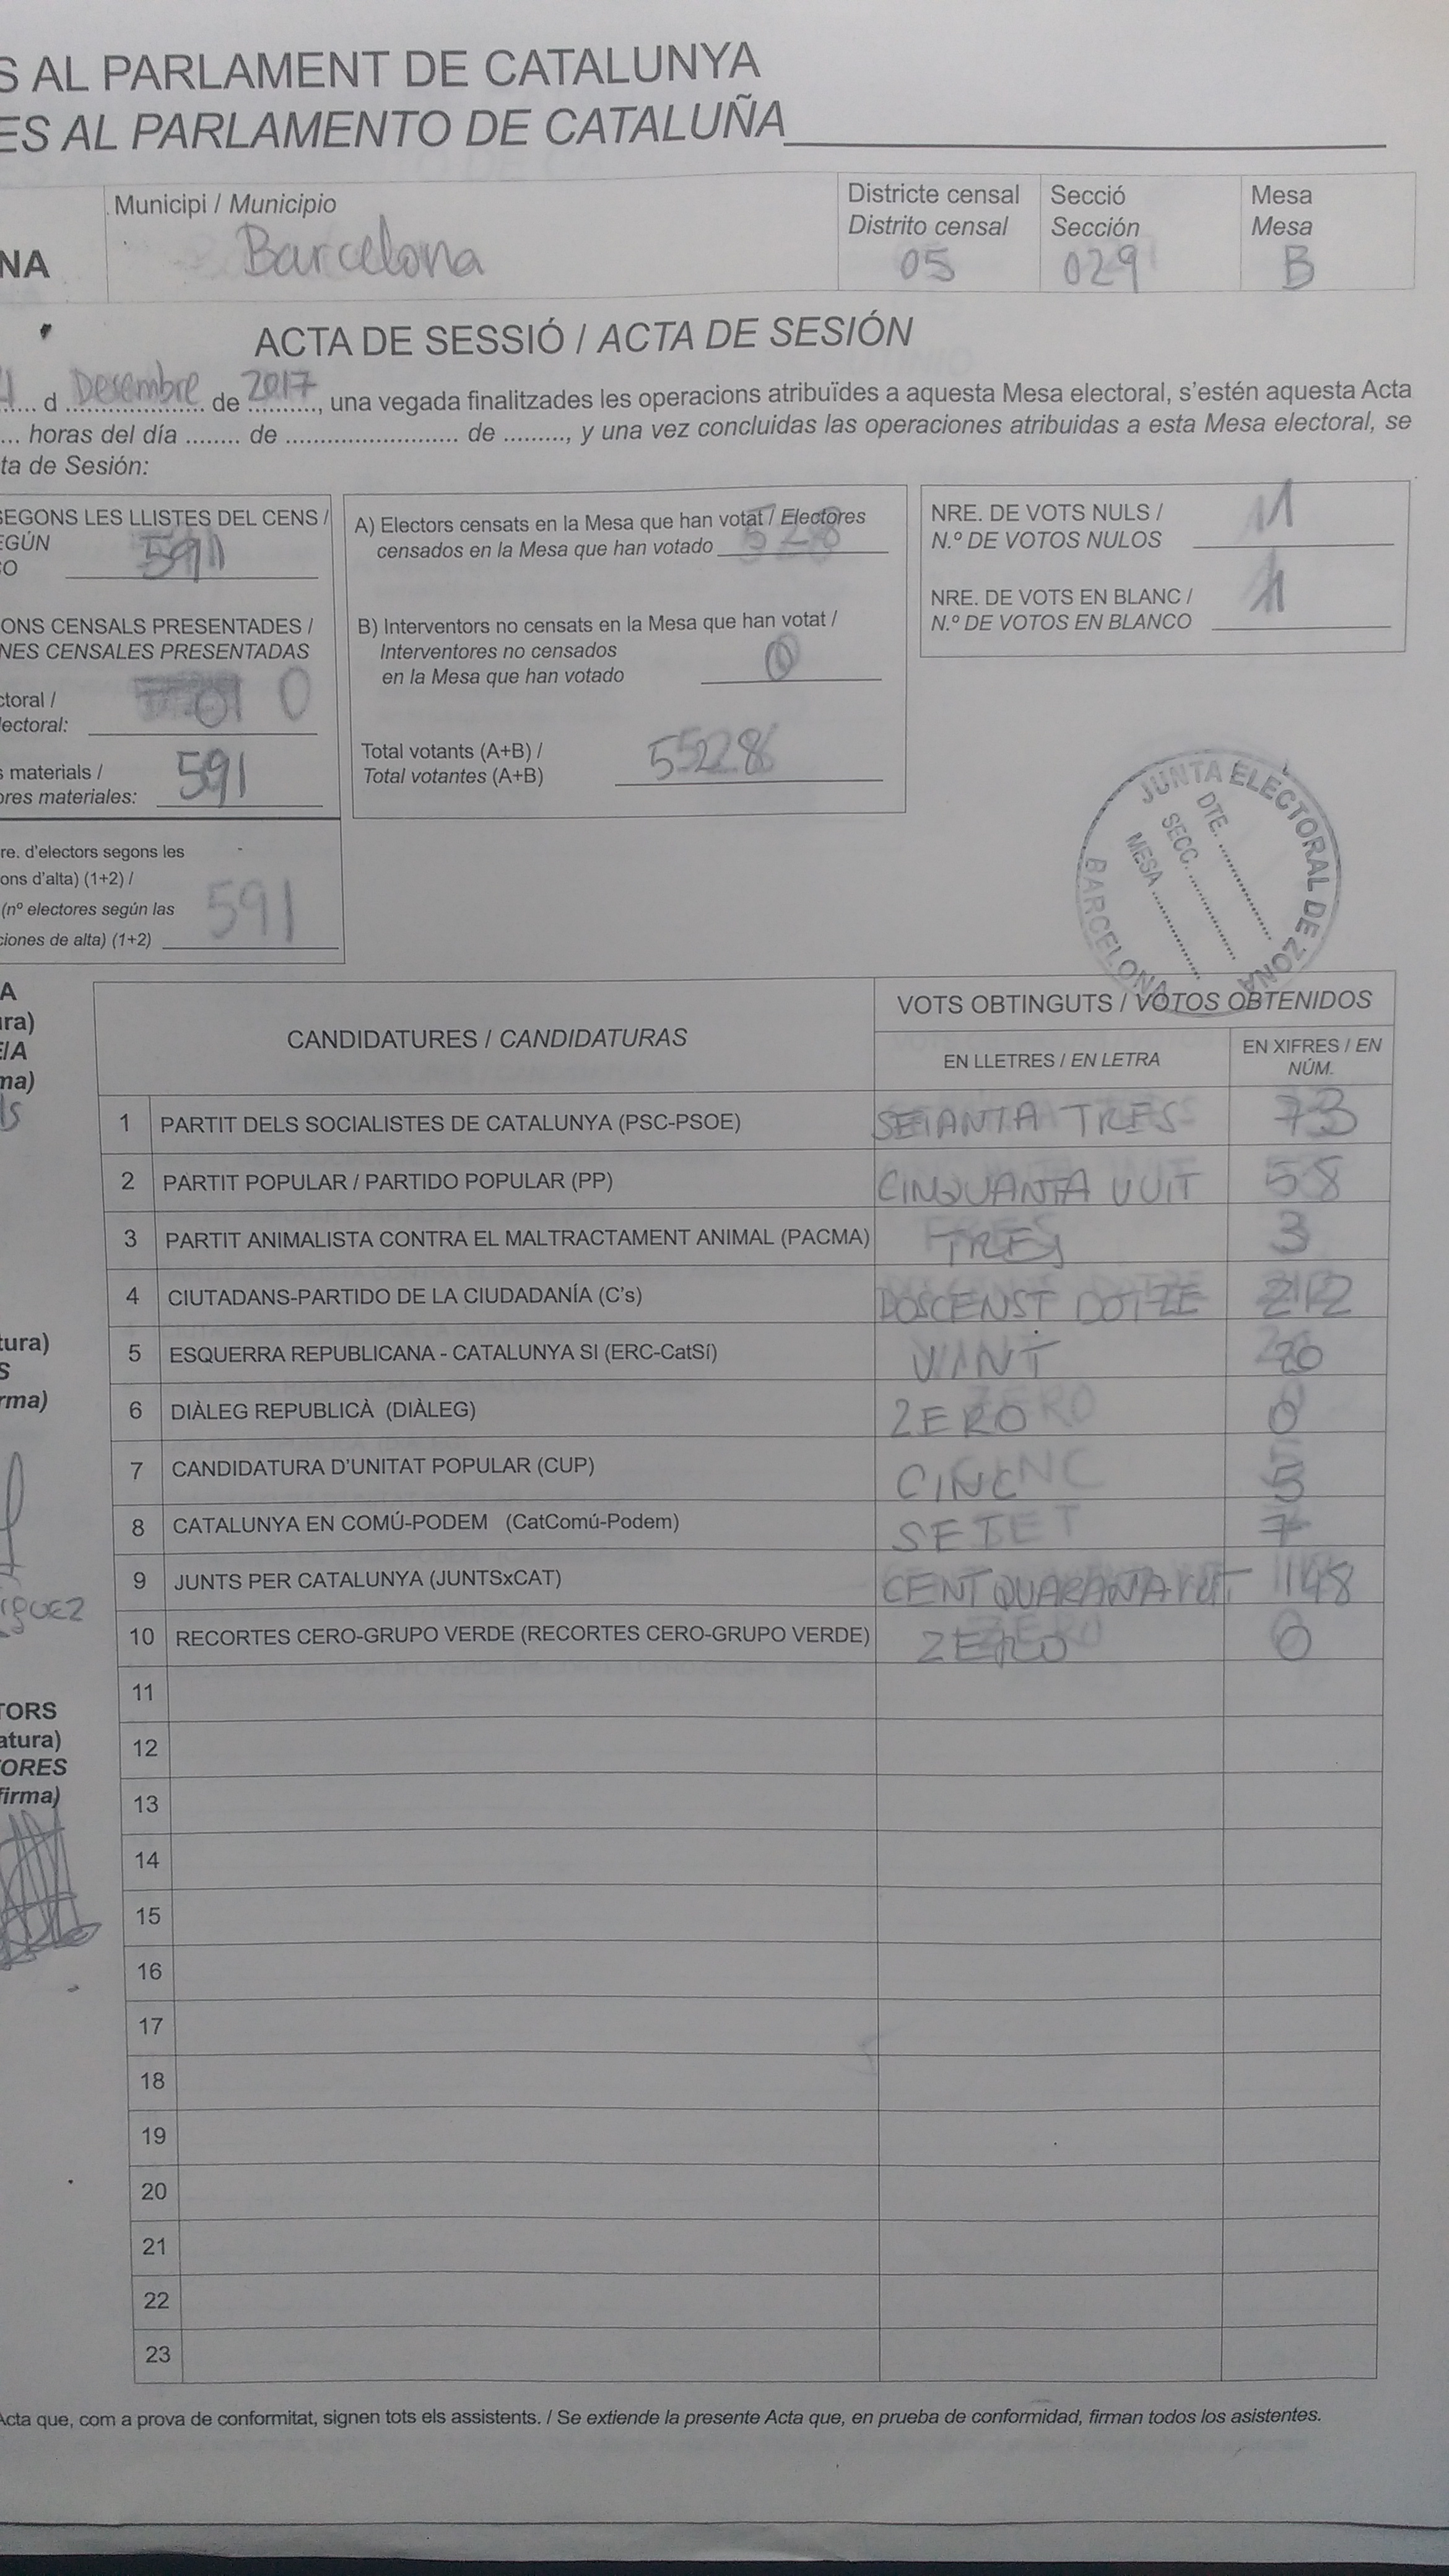 S AL PARLAMENT DE CATALUNYA
ES AL PARLAMENTO DE CATALUÑA
NA
Municipi / Municipio
Barcelona
Districte censal
Distrito censal
05
Secció
Sección
029
Mesa
Mesa
B
ACTA DE SESSIÓ / ACTA DE SESIÓN
d Desembre de 2017, una vegada finalitzades les operacions atribuïdes a aquesta Mesa electoral, s'estén aquesta Acta
... horas del día ........ de ........................ de ........., y una vez concluidas las operaciones atribuidas a esta Mesa electoral, se
ta de Sesión:
SEGONS LES LLISTES DEL CENS /
EGÚN
591
ONS CENSALS PRESENTADES /
NES CENSALES PRESENTADAS
ctoral /
lectoral: 0
s materials /
ores materiales: 591
re. d'electors segons les
ons d'alta) (1+2) /
(nº electores según las
ciones de alta) (1+2) 591
A) Electors censats en la Mesa que han votat / Electores
censados en la Mesa que han votado 528
B) Interventors no censats en la Mesa que han votat /
Interventores no censados
en la Mesa que han votado 0
Total votants (A+B) /
Total votantes (A+B) 528
NRE. DE VOTS NULS /
N.º DE VOTOS NULOS 1
NRE. DE VOTS EN BLANC /
N.º DE VOTOS EN BLANCO 1
JUNTA ELECTORAL DE ZONA
BARCELONA
DTE.
SECC.
MESA
A
ura)
E/A
ma)
CANDIDATURES / CANDIDATURAS
VOTS OBTINGUTS / VOTOS OBTENIDOS
EN LLETRES / EN LETRA
EN XIFRES / EN
NÚM.
1 PARTIT DELS SOCIALISTES DE CATALUNYA (PSC-PSOE) SETANTA TRES 73
2 PARTIT POPULAR / PARTIDO POPULAR (PP) CINQUANTA VUIT 58
3 PARTIT ANIMALISTA CONTRA EL MALTRACTAMENT ANIMAL (PACMA) TRES 3
4 CIUTADANS-PARTIDO DE LA CIUDADANÍA (C's) DOSCENST DOTZE 212
5 ESQUERRA REPUBLICANA - CATALUNYA SI (ERC-CatSí) VINT 20
6 DIÀLEG REPUBLICÀ (DIÀLEG) ZERO 0
7 CANDIDATURA D'UNITAT POPULAR (CUP) CINC 5
8 CATALUNYA EN COMÚ-PODEM (CatComú-Podem) SET 7
9 JUNTS PER CATALUNYA (JUNTSxCAT) CENT QUARANTA VUIT 148
10 RECORTES CERO-GRUPO VERDE (RECORTES CERO-GRUPO VERDE) ZERO 0
11
12
13
14
15
16
17
18
19
20
21
22
23
tura)
S
rma)
TORS
atura)
TORES
firma)
Acta que, com a prova de conformitat, signen tots els assistents. / Se extiende la presente Acta que, en prueba de conformidad, firman todos los asistentes.